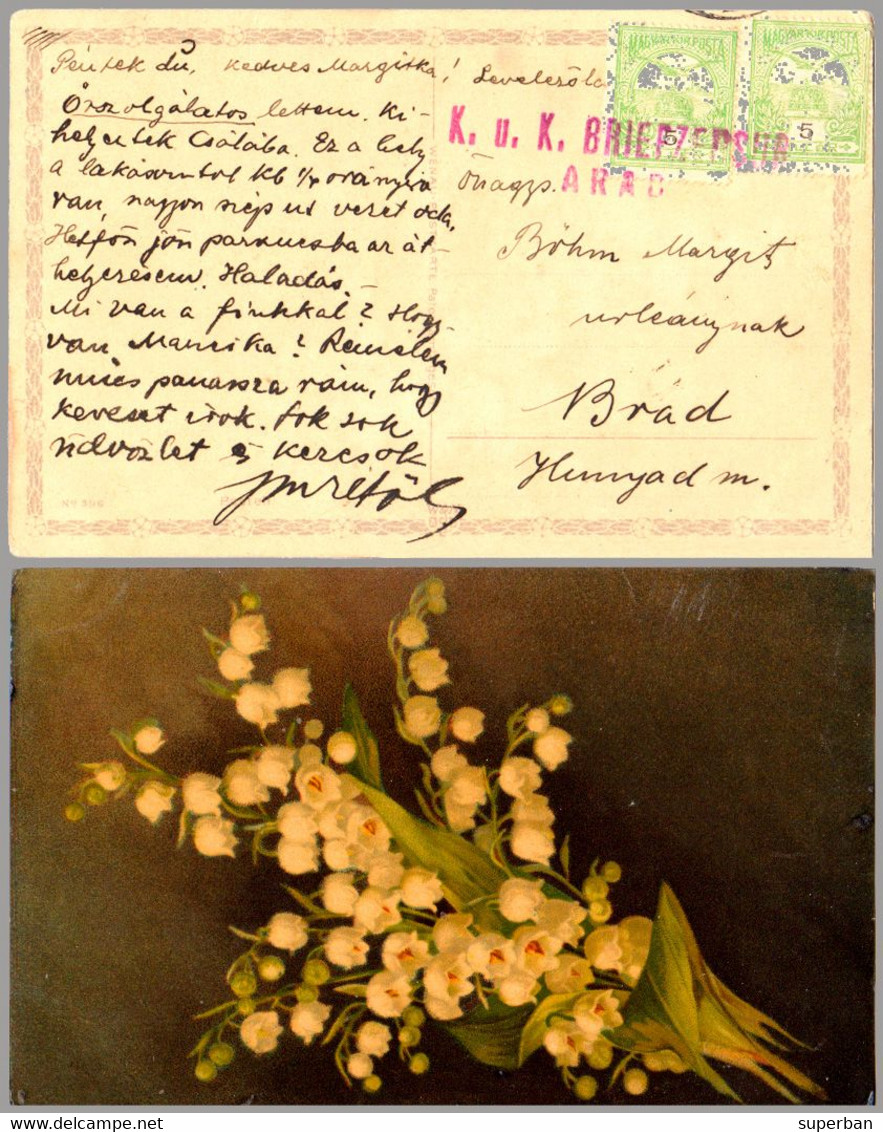 Péntek du, kedves Margitka!
Őrszolgálatos lettem. Ki-
helyeztek Csálába. Ez a hely
a lakásomtól kb 1/4 órányira
van, nagyon szép út vezet oda.
Hétfőn jön parancsba az át-
helyezésem. Haladás. –
Mi van a finkkal? Hogy
van Mancika? Remélem
nincs panasza rám, hogy
keveset írok. Sok sok
üdvözlet és kézcsók
Imretől
MAGYAR KIR. POSTA
5
MAGYAR KIR. POSTA
5
K. u. K. BRIEFZENSUR
ARAD
Őnagys.
Böhm Margit
urleánynak
Brád
Hunyad m.
No 306
superban